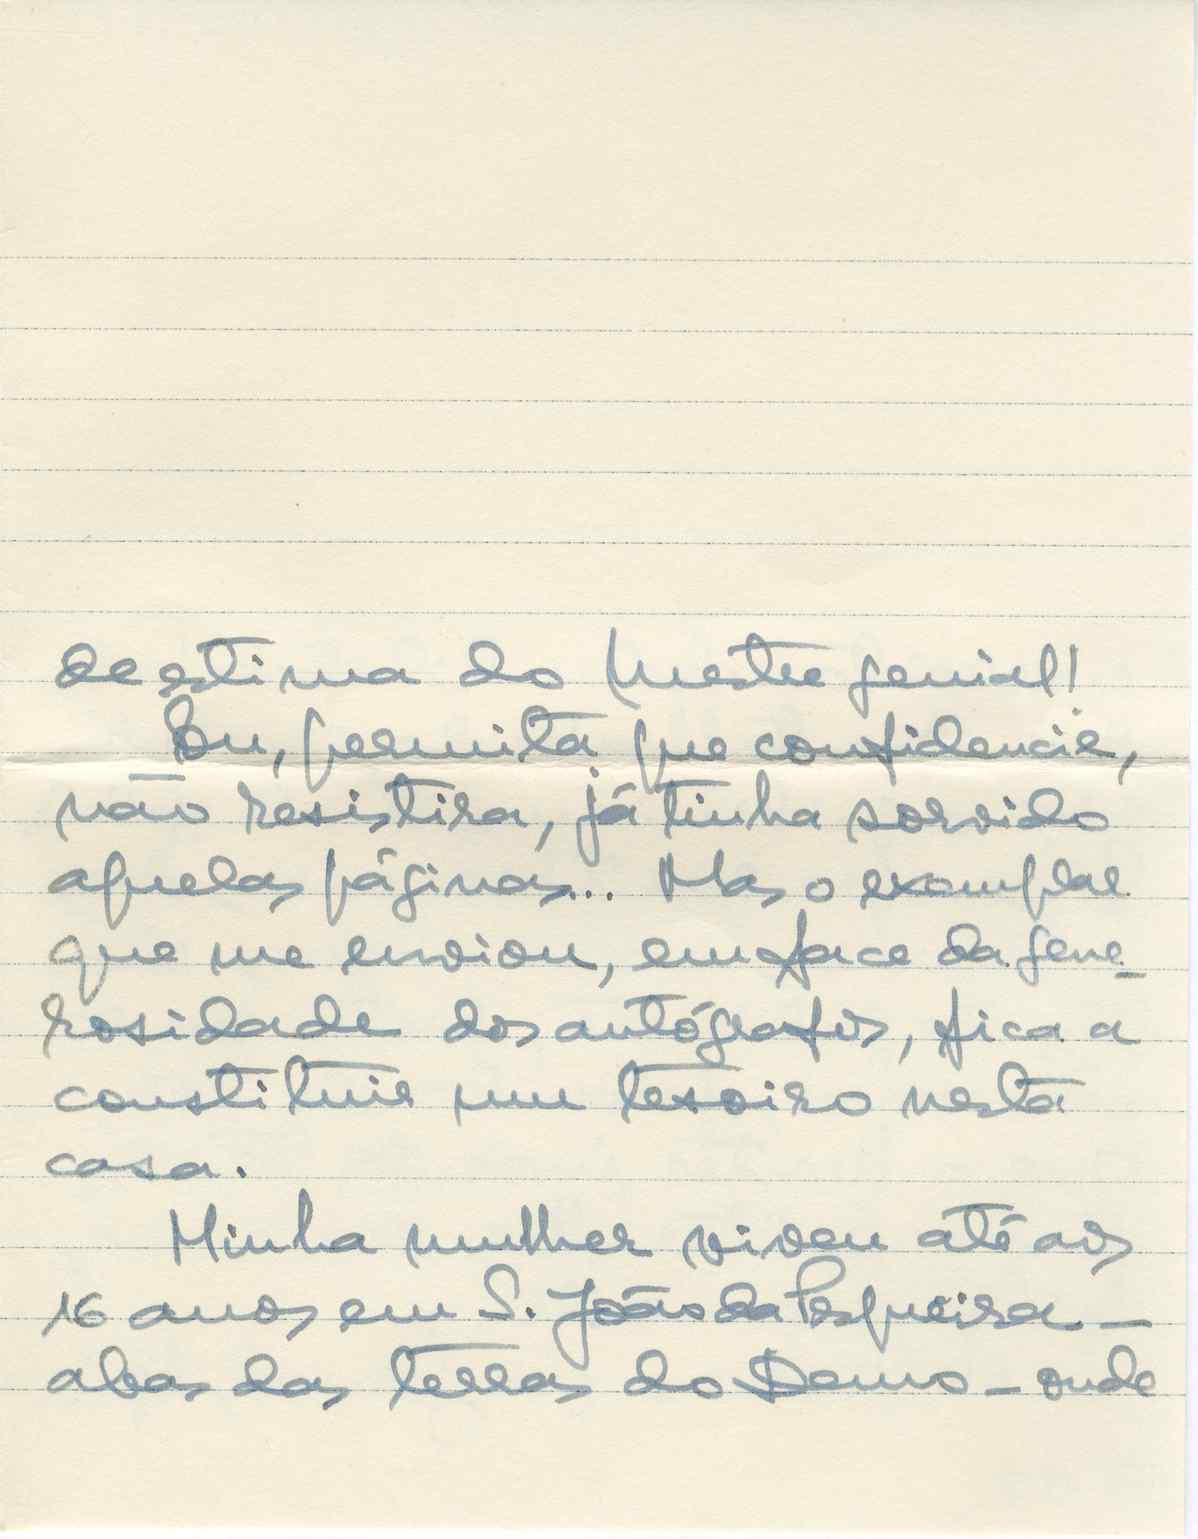 de estima do Mestre genial!
Eu, permita que confidencie,
não resistira, já tinha sorvido
aquelas páginas... Mas o exemplar
que me enviou, em face da gene-
rosidade dos autógrafos, fica a
constituir um tesoiro nesta
casa.
Minha mulher viveu até aos
16 anos em S. João da Pesqueira –
abas das terras do Demo – onde